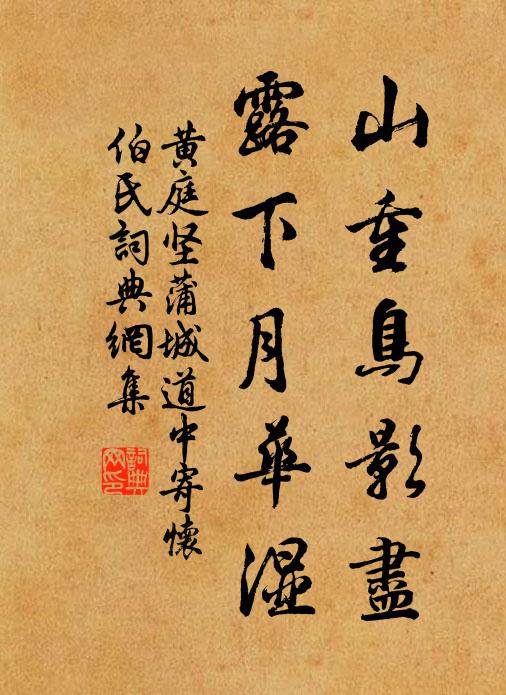 山重鳥影盡
露下月華濕
黄庭坚蒲城道中寄懷
伯氏詞典網集
詞典
网印